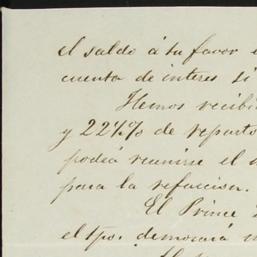 el saldo á tu favor
cuenta de interes si
Hemos recibi
y 22½% de reparto
podia reunirse el
para la refaccion.
El Prince
el tpo. demorará